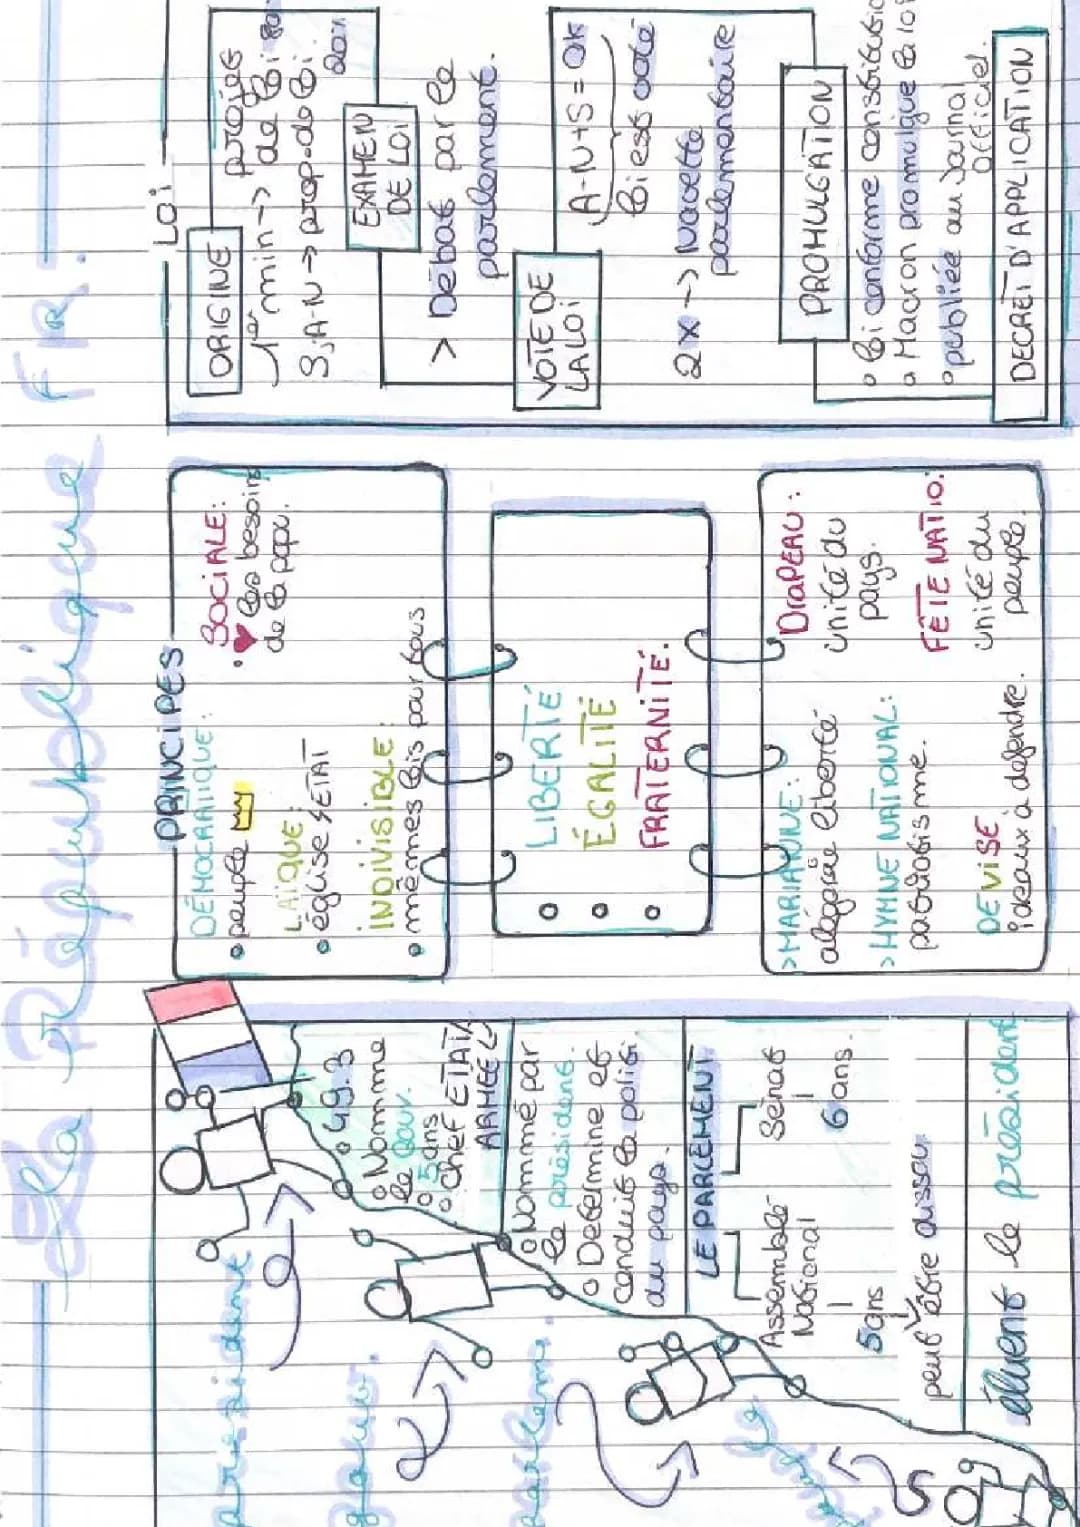 La République FR.
président
gouv.
parlem.
49.3
Nomme
le Gouv.
5 ans
chef ETAT/
ARMÉE
Nommé par
le président.
Determine et
conduit la politi
du pays.
LE PARLEMENT
Assemblé
National
5ans
Sénat
6 ans.
peut être dissou
éluent le président
PRINCIPES
DÉMOCRATIQUE:
peuple
LAÏQUE:
église ≠ ETAT
INDIVISIBLE:
mêmes lois pour tous
SOCIALE:
les besoins
de la popu.
LIBERTÉ
ÉGALITÉ
FRATERNITÉ.
>MARIANNE:
alégorie liberté
>HYMNE NATIONAL:
patriotisme.
DEVISE
ideaux à défendre.
DRAPEAU:
unité du
pays.
FÊTE NATIO:
unité du
peuple.
LOI
ORIGINE
1er min -> projet
de loi
S, A-N -> prop. de loi.
EXAMEN
DE LOI
> Débat par le
parlement.
VOTE DE
LA LOI
A-N+S = ok
loi est voté
2x -> Navette
parlementaire
PROMULGATION
loi conforme constitutio
Macron promulgue la loi
publiée au Journal
Officiel.
DECRET D'APPLICATION